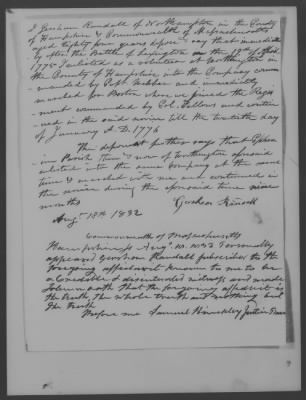 I Gershom Randall of Northampton in the County
of Hampshire & Commonwealth of Massachusetts
aged Eighty four years depose & say that immediately
after the Battle of Lexington on the 19th of April
1775 I enlisted as a volunteer at Worthington in
the County of Hampshire into the Company com
manded by Capt and immediately
marched for Boston where we joined the Regi
ment commanded by Col. Fellows and contin
ued in the said service till the twentieth day
of January A.D. 1776
This deponent further say that
Parish then & now of Worthington aforesaid
enlisted into the same company at the same
time & marched with me and continued in
the service during the aforesaid time nine
months
Augt 18th 1832
Gershom Randall
Commonwealth of Massachusetts
Hampshire ss Aug. 1832 Personally
appeared Gershom Randall subscriber to the
foregoing affidavit known to me to be
a Credible & disinterested witness and made
Solemn oath that the foregoing affidavit is
the truth, the whole truth and nothing but
the truth
Before me Samuel Hinckley Justice Peace